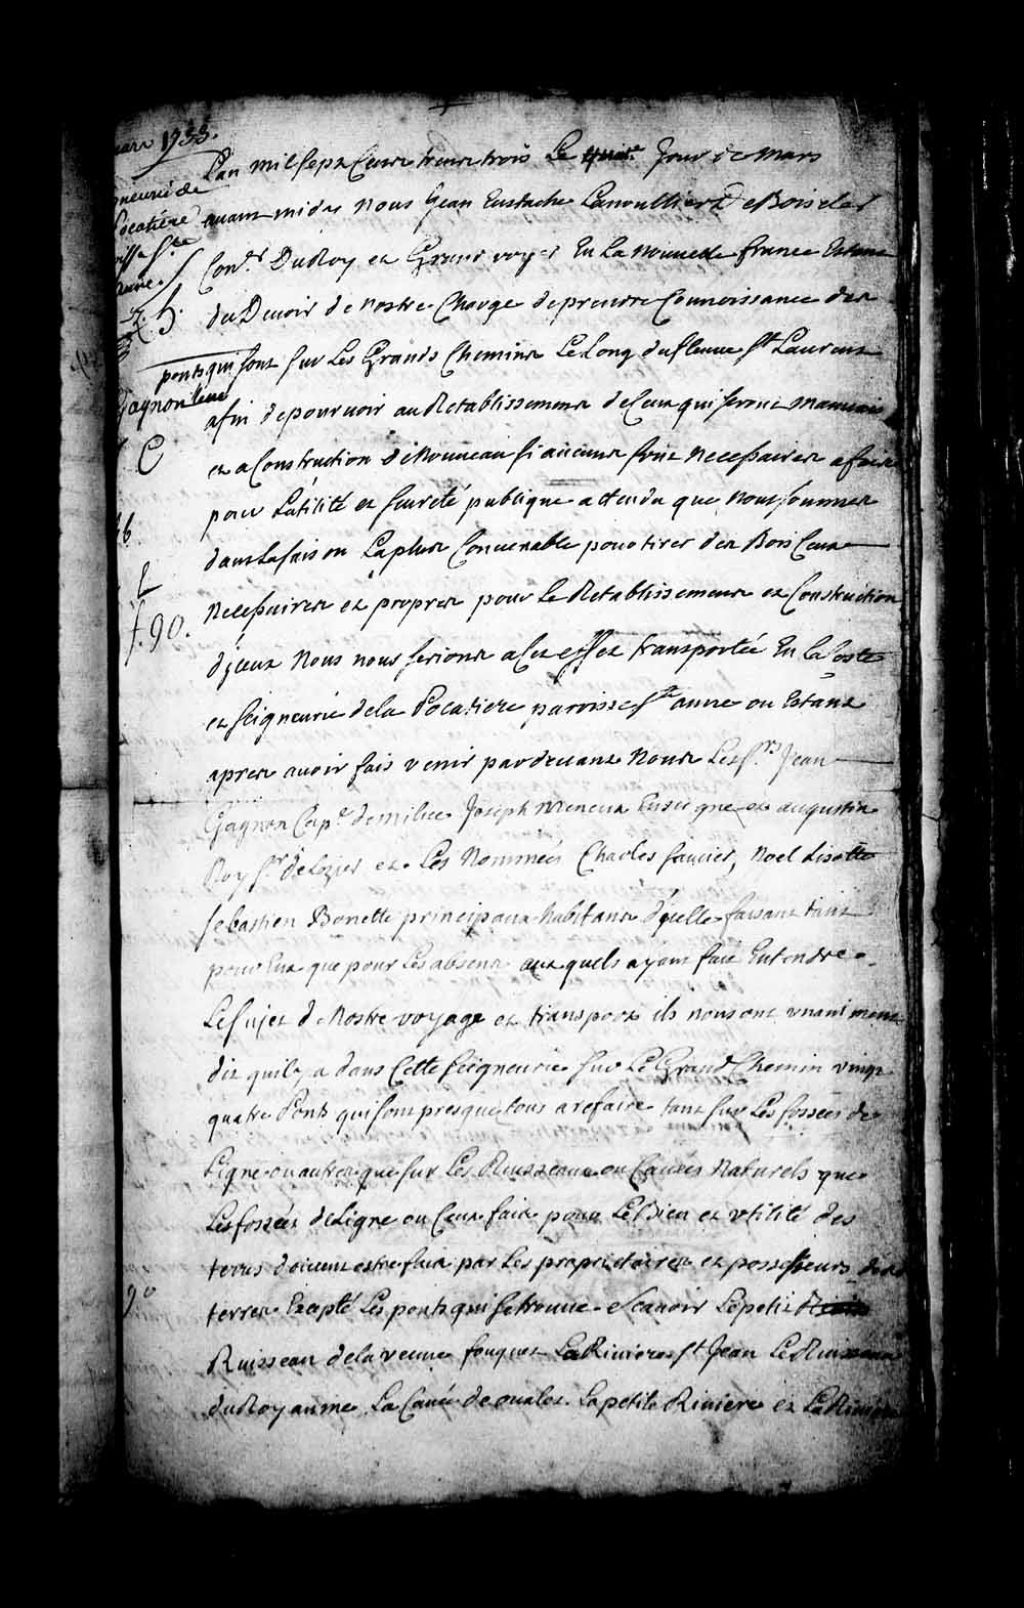 mars 1733.
Lan mil sept Cens trente trois Le jour de Mars
avant midy Nous Jean Eustache Lanoullier De Boisclerc
Con.er Du Roy et Grand voyer En La Nouvelle france Estant
du Devoir de nostre Charge de prendre Connoissance des
ponts qui sont sur Les Grands Chemins Le Long du fleuve St Laurent
afin de pourvoir au Retablissement de Ceux qui seront mauvais
et a Construction de Nouveau si aucuns sont necessaires a faire
pour Lutilité et seureté publique attendu que Nous sommes
dans La saison La plus Convenable pour tirer des Bois
necessaires et propres pour Le Retablissement et Construction
diceux Nous nous serions a Cet effet transporté En la Coste
et seigneurie de la Pocatiere paroisse Ste anne ou Estant
apres avoir fais venir pardevant Nous Les Srs Jean
Gagnon Cap.e de milice Joseph Meneux Enseigne et augustin
Roy Sr de Lozier et Les Nommées Charles saucier, Noel Lisotte
sebastien Bonette principaux habitans dycelle faisant tant
pour Eux que pour Les absens auxquels ayant fait Entendre
Le sujet de Nostre voyage et transport ils nous ont unaniment
dit quil y a dans Cette seigneurie sur Le Grand Chemin vingt
quatre Ponts qui sont presque tous a refaire tant sur Les fossées de
Ligne ou autres que sur Les Ruisseaux ou Cauées Naturels que
Les fossées de Ligne ou Ceux faits pour Le Bien et utilité des
terres doivent estre fait par Les proprietaires et possesseurs des
terres Exepté Les ponts qui se trouve scavoir Le petit
Ruisseau de la veuve fouquet La Riviere St Jean Le Ruisseau
du Roy anne La Cauée de oualet La petite Riviere et La Riviere
Pocatiere
Ste
anne.
Gagnon
C
L
f. 90.